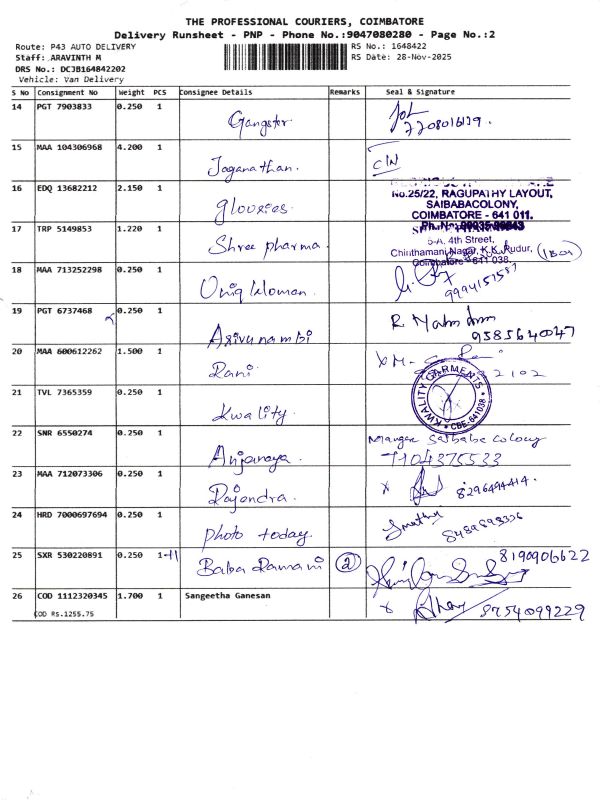 THE PROFESSIONAL COURIERS, COIMBATORE
Delivery Runsheet - PNP - Phone No.:9047080280 - Page No.:2
Route: P43 AUTO DELIVERY
RS No.: 1648422
Staff: ARAVINTH M
RS Date: 28-Nov-2025
DRS No.: DCJB164842202
Vehicle: Van Delivery
S No Consignment No Weight PCS Consignee Details Remarks Seal & Signature
14 PGT 7903833 0.250 1 Gangster.
15 MAA 104306968 4.200 1 Jaganathan. C/W
16 EDQ 13682212 2.150 1 glouries.
No.25/22, RAGUPATHY LAYOUT,
SAIBABACOLONY,
COIMBATORE - 641 011.
17 TRP 5149853 1.220 1 Shree pharma.
5-A, 4th Street,
Chinthamani Nagar, K.K. Pudur,
Coimbatore - 641 038.
18 MAA 713252298 0.250 1 Uniq Woman. 9994157587
19 PGT 6737468 0.250 1 Arivunambi R
9585640047
20 MAA 600612262 1.500 1 Rani. 2102
21 TVL 7365359 0.250 1 Kwality.
KWALITY GARMENTS
* CBE-641038 *
22 SNR 6550274 0.250 1 Anjanaya. Saibaba Colony
7104375533
23 MAA 712073306 0.250 1 Rajendra. x 8296494414.
24 HRD 7000697694 0.250 1 photo today.
8489898336
25 SXR 530220891 0.250 1+1 Baba Ramani 2 8190906622
26 COD 1112320345 1.700 1 Sangeetha Ganesan x 8754099229
COD Rs.1255.75